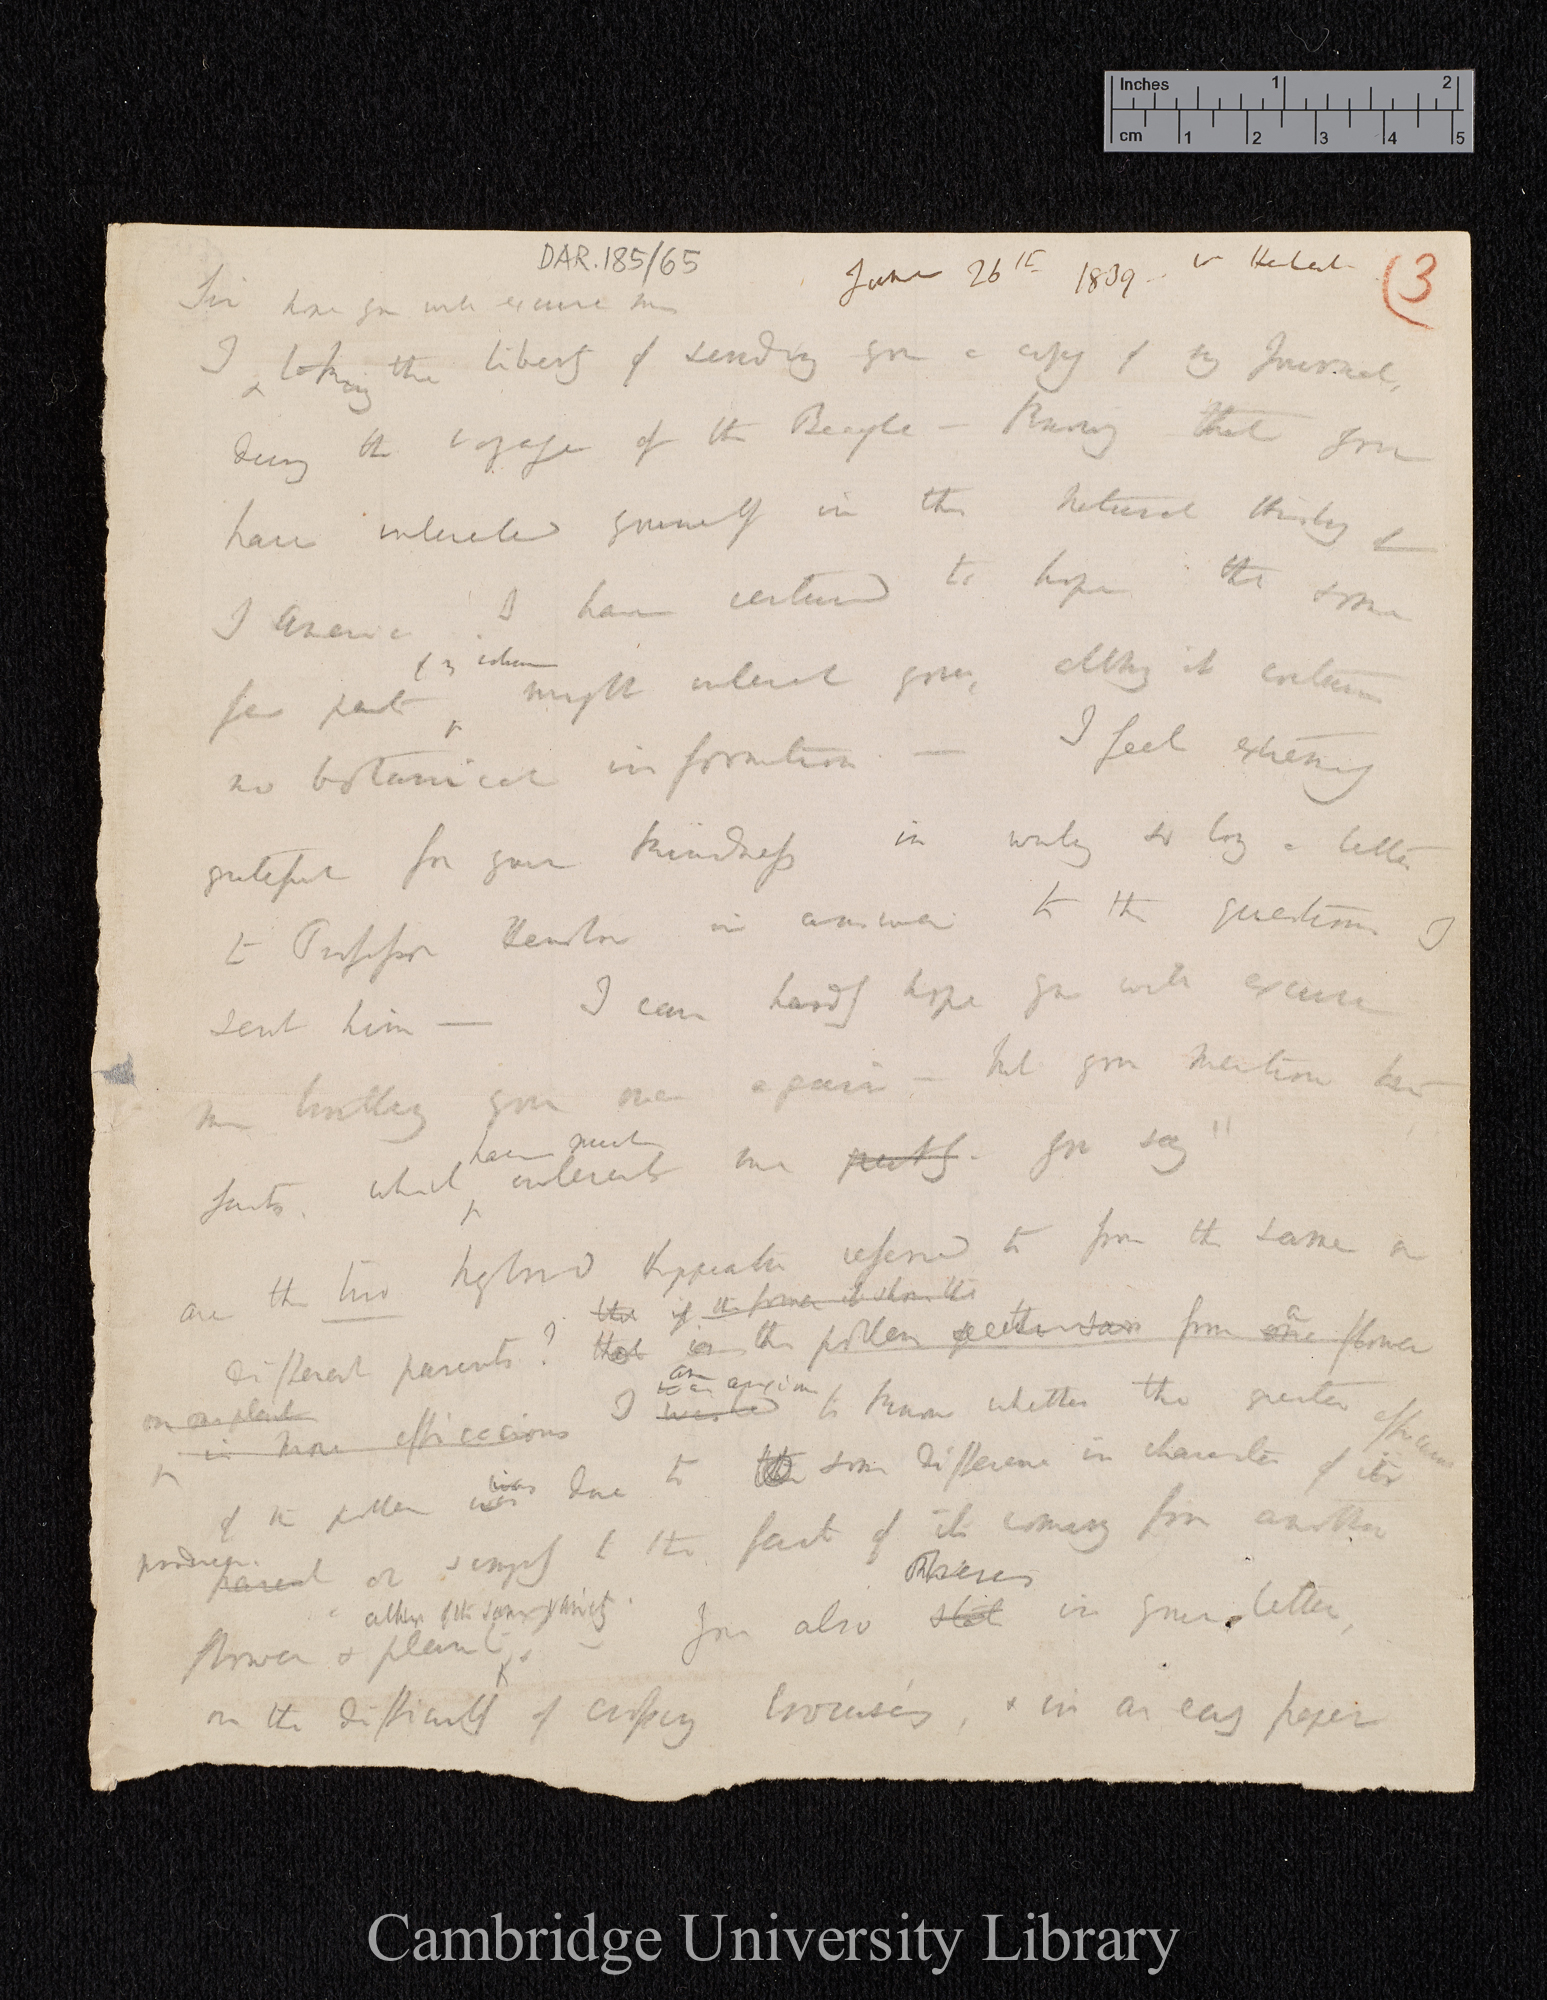 Inches 1 2
cm 1 2 3 4 5
DAR.185/65
June 26th 1839 – W Herbert
(3
Sir hope you will excuse me
I taking the liberty of sending you a copy of my Journal,
during the voyage of the Beagle — Knowing that you
have interested yourself in the natural history of
S America, I have ventured to hope the some
of my volume
few part might interest you, althoug it contains
no botanical information — I feel extremely
grateful for your kindness in writing so long a letter
to Professor Henslow in answer to the questions I
sent him — I can hardly hope you will excuse
me troubling you once again — but you mention two
have much
facts. which interests me partly. you say "
are the two hybrid Hippeastra referred to from the same or
the if the former it
different parents? that is the pollen from a one flower
on one plant
am anxious
is more efficacious I wished to know whether the greater efficacious
was
of the pollen was due to the some difference in character of its
producer.
parent or simply to the fact of its coming from another
of the same variety.
observes
flower & plant. — You also state in your letter,
on the difficulty of crossing crocuses, & in an early paper
Cambridge University Library